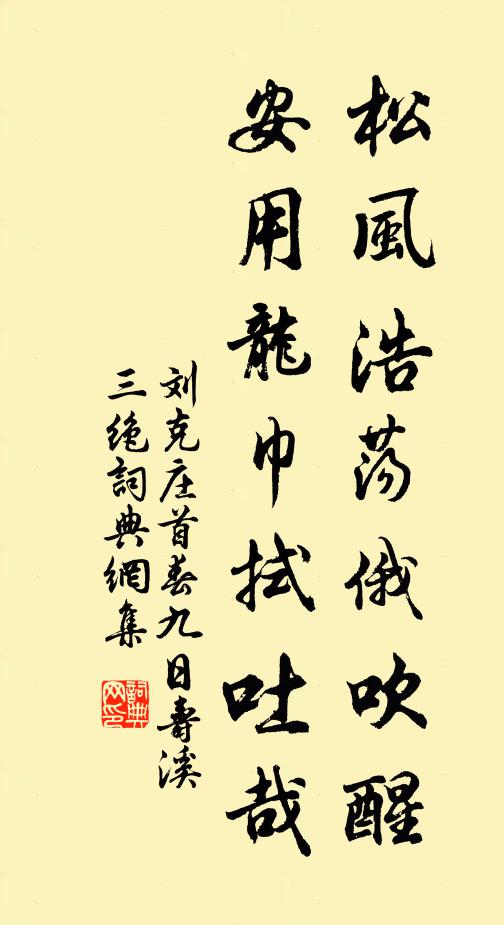 松風浩蕩俄吹醒
安用龍巾拭吐哉
刘克庄首春九日壽溪
三绝詞典網集
詞典網印